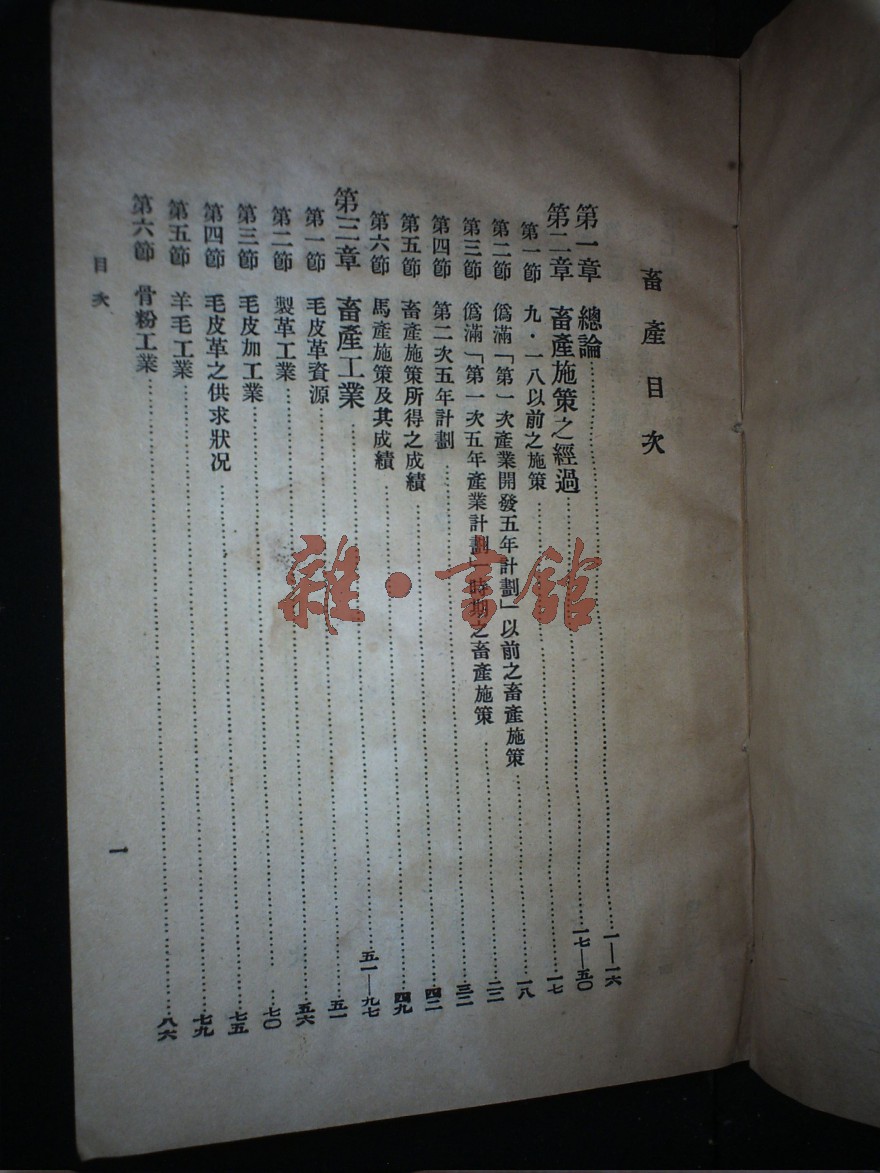 畜產目次
第一章 總論……一—一六
第二章 畜產施策之經過……一七—五〇
第一節 九·一八以前之施策……一七
第二節 僞滿「第一次產業開發五年計劃」以前之畜產施策……一八
第三節 僞滿「第一次五年產業計劃」時期之畜產施策……二二
第四節 第二次五年計劃……三二
第五節 畜產施策所得之成績……四二
第六節 馬產施策及其成績……四九
第三章 畜產工業……五一—九七
第一節 毛皮革資源……五一
第二節 製革工業……五六
第三節 毛皮加工業……七〇
第四節 毛皮革之供求狀况……七五
第五節 羊毛工業……七九
第六節 骨粉工業……八六
目次
一
雜·書館